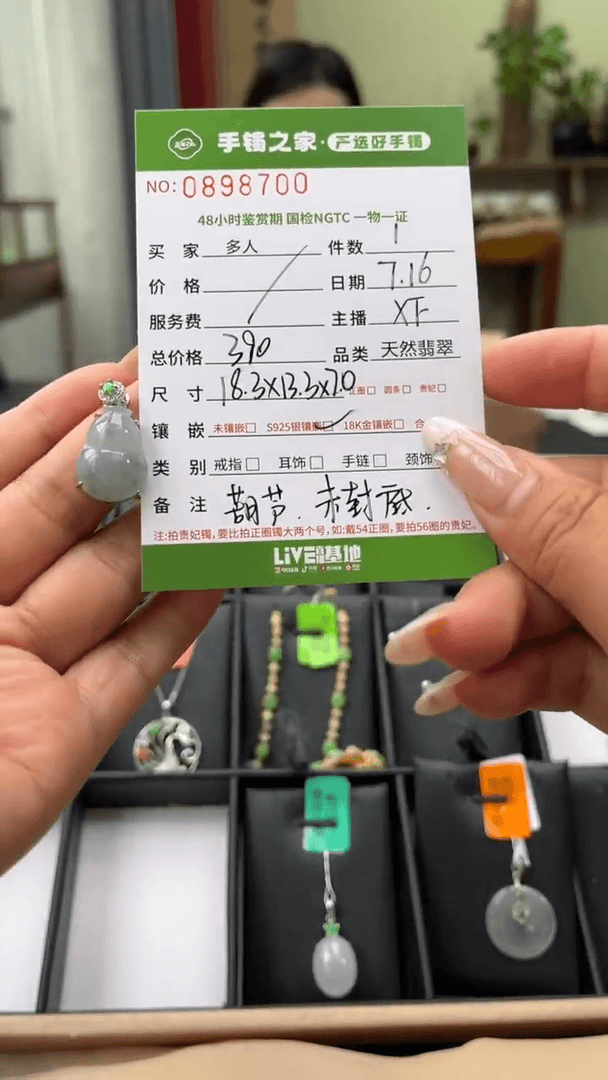 手镯之家·严选好手镯
NO: 0898700
48小时鉴赏期 国检NGTC 一物一证
买 家 多人 件数 1
价 格 日期 7.16
服务费 主播 XF
总价格 390 品类 天然翡翠
尺 寸 18.3X13.3X7.0 正圈□ 圆条□ 贵妃□
镶 嵌 未镶嵌□ S925银镶嵌□ 18K金镶嵌□ 合
类 别 戒指□ 耳饰□ 手链□ 颈饰
备 注 葫芦.未封底.
注:拍贵妃镯,要比拍正圈镯大两个号,如:戴54正圈,要拍56圈的贵妃。
LiVE基地